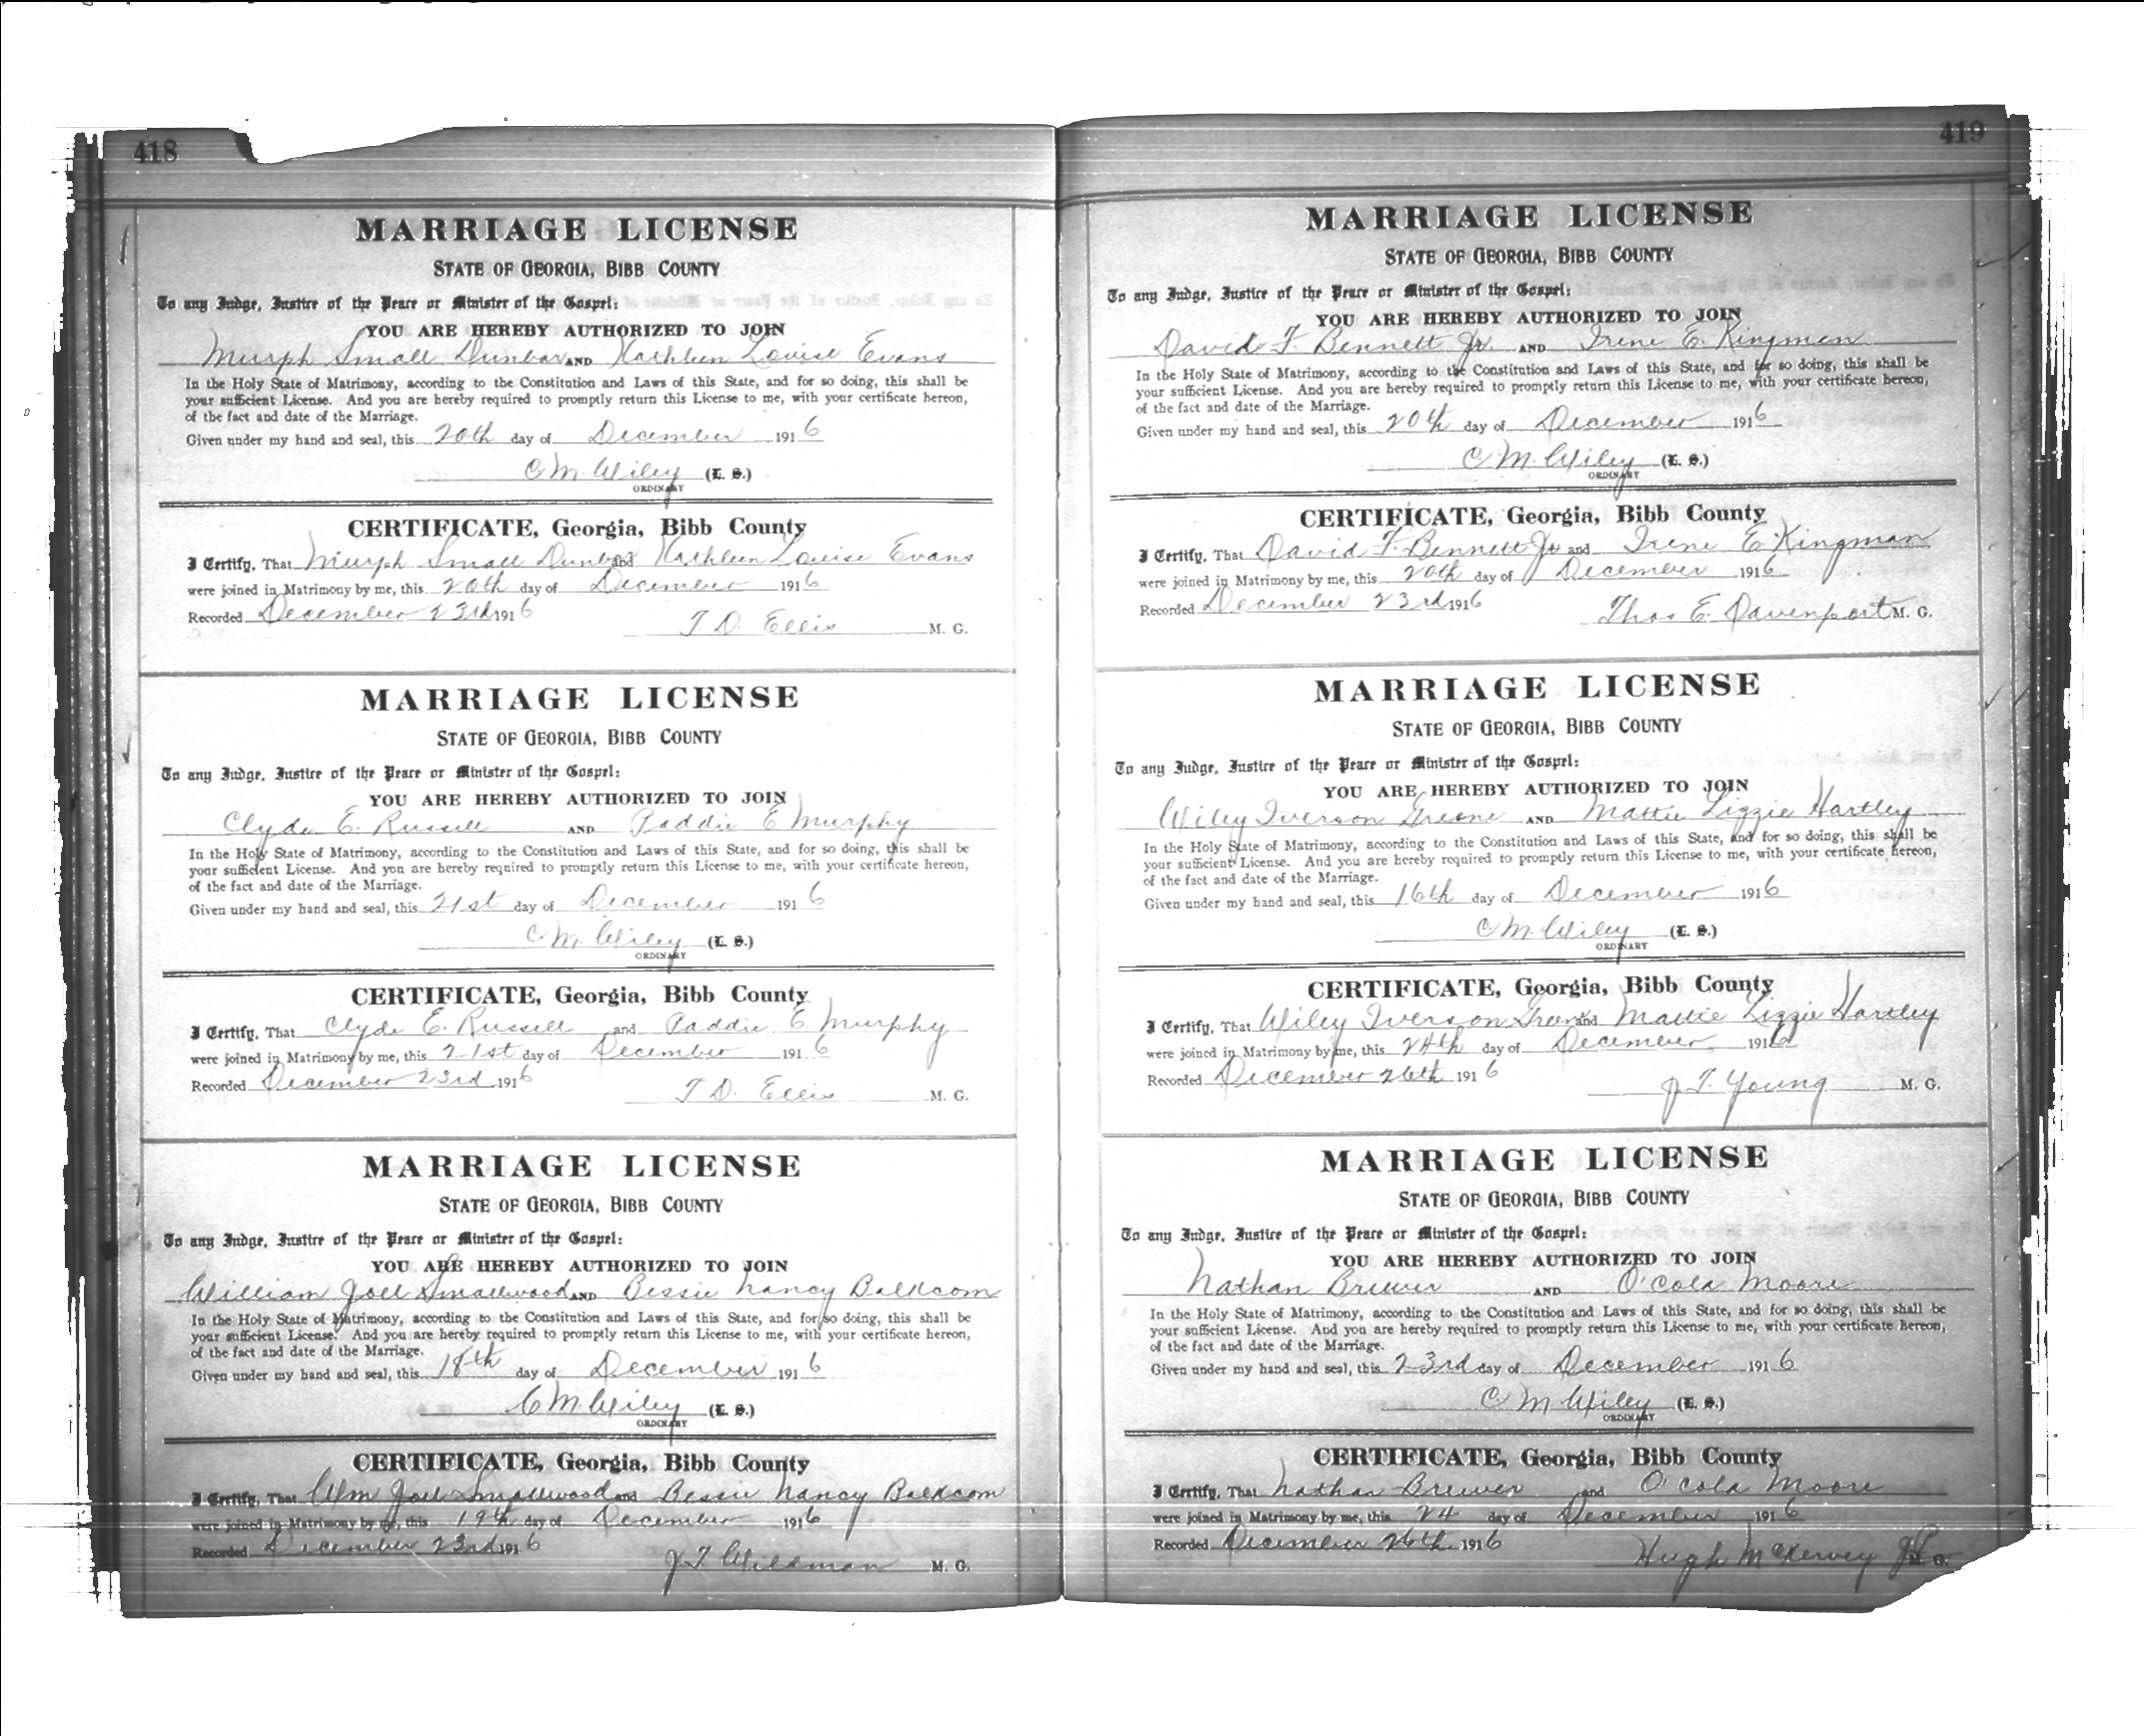 418
MARRIAGE LICENSE
STATE OF GEORGIA, BIBB COUNTY
To any Judge, Justice of the Peace or Minister of the Gospel:
YOU ARE HEREBY AUTHORIZED TO JOIN
Murph Small Dunbar AND Kathleen Louise Evans
In the Holy State of Matrimony, according to the Constitution and Laws of this State, and for so doing, this shall be
your sufficient License. And you are hereby required to promptly return this License to me, with your certificate hereon,
of the fact and date of the Marriage.
Given under my hand and seal, this 20th day of December 1916
C M. Wiley (L. S.)
ORDINARY
CERTIFICATE, Georgia, Bibb County
I Certify, That Murph Small Dunbar and Kathleen Louise Evans
were joined in Matrimony by me, this 20th day of December 1916
Recorded December 23rd 1916
T D. Ellis M. G.
MARRIAGE LICENSE
STATE OF GEORGIA, BIBB COUNTY
To any Judge, Justice of the Peace or Minister of the Gospel:
YOU ARE HEREBY AUTHORIZED TO JOIN
Clyde E. Russell AND Paddie E Murphy
In the Holy State of Matrimony, according to the Constitution and Laws of this State, and for so doing, this shall be
your sufficient License. And you are hereby required to promptly return this License to me, with your certificate hereon,
of the fact and date of the Marriage.
Given under my hand and seal, this 21st day of December 1916
C. M. Wiley (L. S.)
ORDINARY
CERTIFICATE, Georgia, Bibb County
I Certify, That Clyde E. Russell and Paddie E Murphy
were joined in Matrimony by me, this 21st day of December 1916
Recorded December 23rd 1916
T D. Ellis M. G.
MARRIAGE LICENSE
STATE OF GEORGIA, BIBB COUNTY
To any Judge, Justice of the Peace or Minister of the Gospel:
YOU ARE HEREBY AUTHORIZED TO JOIN
William Joel Smallwood AND Bessie Nancy Balkcom
In the Holy State of Matrimony, according to the Constitution and Laws of this State, and for so doing, this shall be
your sufficient License. And you are hereby required to promptly return this License to me, with your certificate hereon,
of the fact and date of the Marriage.
Given under my hand and seal, this 18th day of December 1916
C M Wiley (L. S.)
ORDINARY
CERTIFICATE, Georgia, Bibb County
I Certify, That Wm Joel Smallwood and Bessie Nancy Balkcom
were joined in Matrimony by me, this 19th day of December 1916
Recorded December 23rd 1916
J T Wildman M. G.
419
MARRIAGE LICENSE
STATE OF GEORGIA, BIBB COUNTY
To any Judge, Justice of the Peace or Minister of the Gospel:
YOU ARE HEREBY AUTHORIZED TO JOIN
David F. Bennett Jr. AND Irene E. Kingman
In the Holy State of Matrimony, according to the Constitution and Laws of this State, and for so doing, this shall be
your sufficient License. And you are hereby required to promptly return this License to me, with your certificate hereon,
of the fact and date of the Marriage.
Given under my hand and seal, this 20th day of December 1916
C M. Wiley (L. S.)
ORDINARY
CERTIFICATE, Georgia, Bibb County
I Certify, That David F. Bennett Jr and Irene E Kingman
were joined in Matrimony by me, this 20th day of December 1916
Recorded December 23rd 1916
Thos E. Davenport M. G.
MARRIAGE LICENSE
STATE OF GEORGIA, BIBB COUNTY
To any Judge, Justice of the Peace or Minister of the Gospel:
YOU ARE HEREBY AUTHORIZED TO JOIN
Wiley Iverson Greene AND Mattie Lizzie Hartley
In the Holy State of Matrimony, according to the Constitution and Laws of this State, and for so doing, this shall be
your sufficient License. And you are hereby required to promptly return this License to me, with your certificate hereon,
of the fact and date of the Marriage.
Given under my hand and seal, this 16th day of December 1916
C M. Wiley (L. S.)
ORDINARY
CERTIFICATE, Georgia, Bibb County
I Certify, That Wiley Iverson Greene and Mattie Lizzie Hartley
were joined in Matrimony by me, this 24th day of December 1916
Recorded December 26th 1916
J T. Young M. G.
MARRIAGE LICENSE
STATE OF GEORGIA, BIBB COUNTY
To any Judge, Justice of the Peace or Minister of the Gospel:
YOU ARE HEREBY AUTHORIZED TO JOIN
Nathan Brewer AND O'Cola Moore
In the Holy State of Matrimony, according to the Constitution and Laws of this State, and for so doing, this shall be
your sufficient License. And you are hereby required to promptly return this License to me, with your certificate hereon,
of the fact and date of the Marriage.
Given under my hand and seal, this 23rd day of December 1916
C M Wiley (L. S.)
ORDINARY
CERTIFICATE, Georgia, Bibb County
I Certify, That Nathan Brewer and O'Cola Moore
were joined in Matrimony by me, this 24 day of December 1916
Recorded December 26th 1916
Hugh McKervey